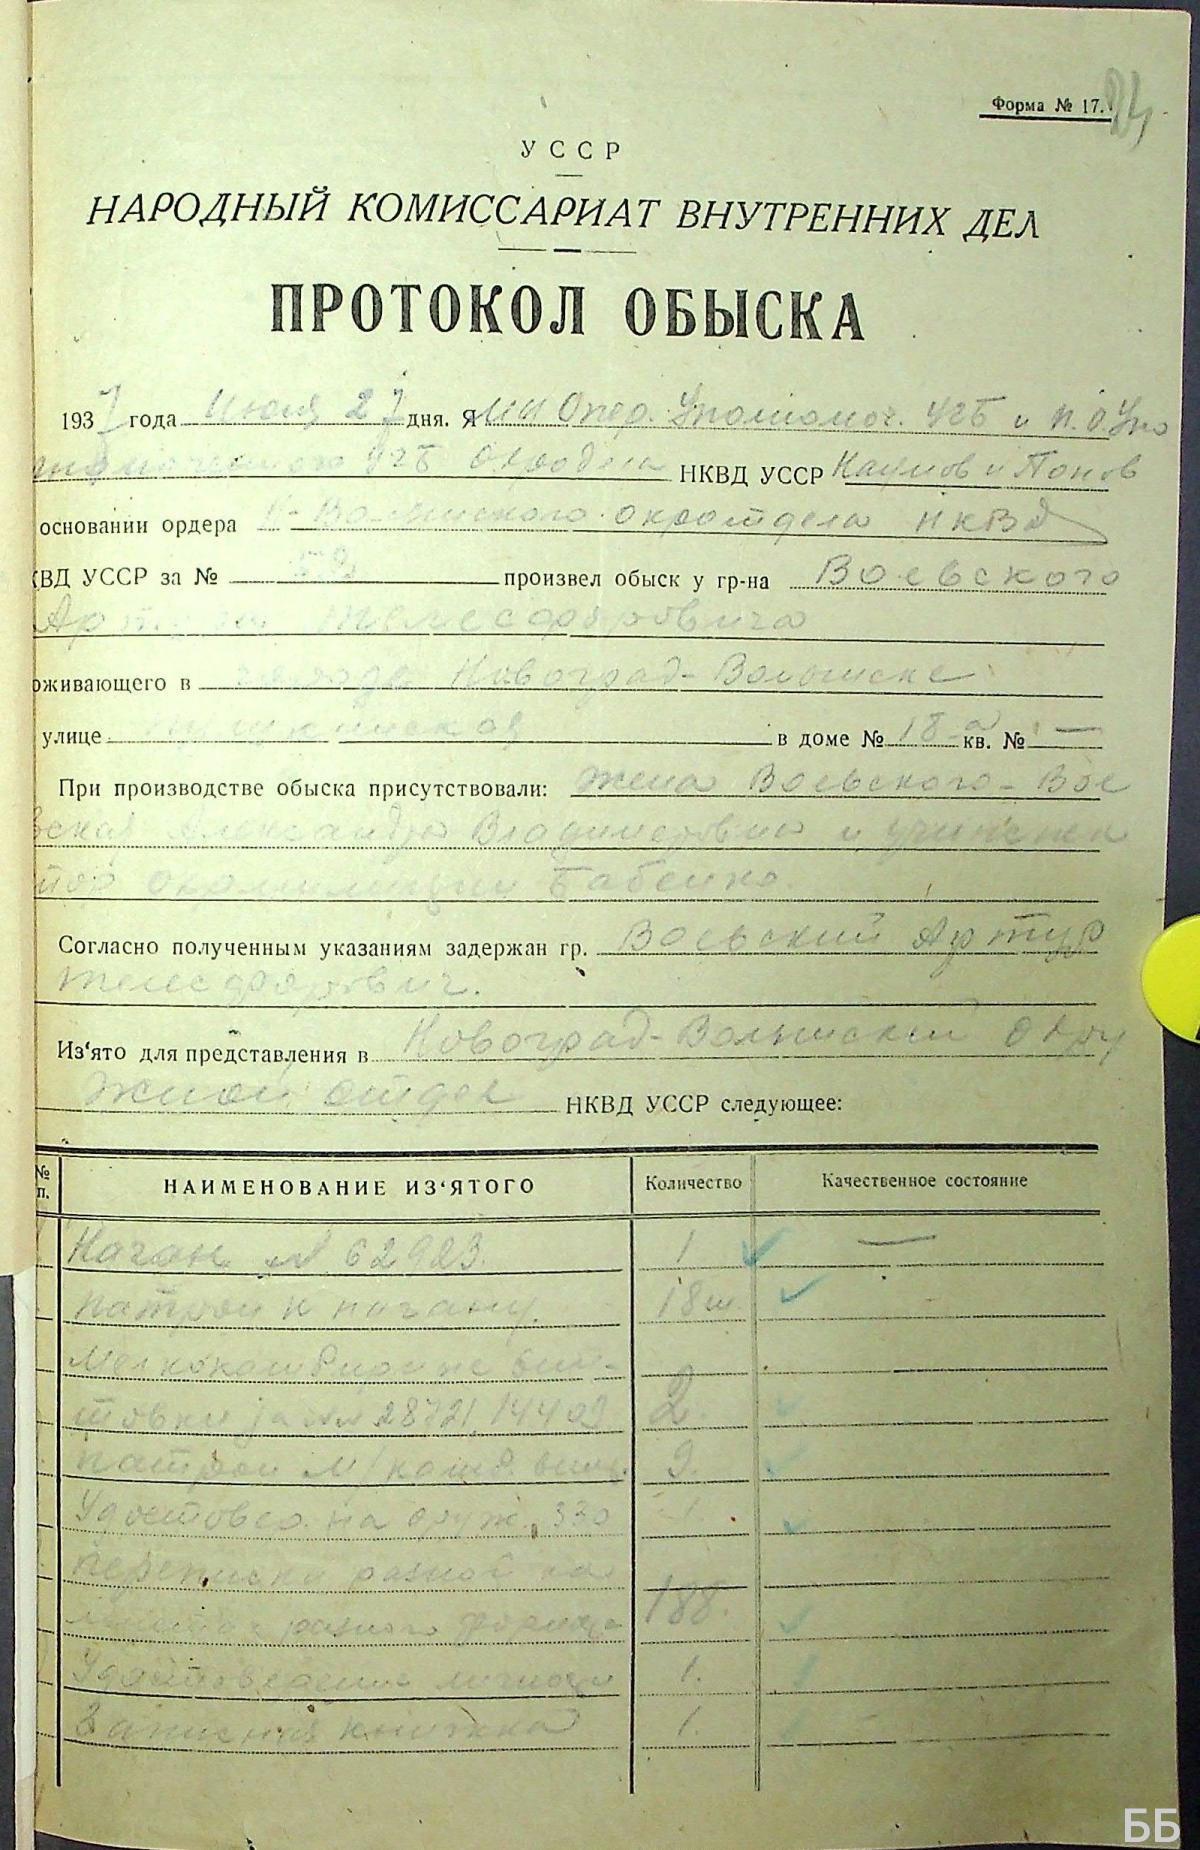 Форма № 17.
УССР
НАРОДНЫЙ КОМИССАРИАТ ВНУТРЕННИХ ДЕЛ
ПРОТОКОЛ ОБЫСКА
1937 года Июля 27 дня. Я Опер. Уполномоч. УГБ и
УГБ НКВД УССР Наумов и Попов
основании ордера Н-Волынского окротдела НКВД
КВД УССР за № произвел обыск у гр-на Воевского
Артура Телесфоровича
оживающего в города Новоград-Волынске
улице Пушкинская в доме № 18-а кв. № —
При производстве обыска присутствовали: жена Воевского - Вое
вская Александра Владимировна и
Бабенко.
Согласно полученным указаниям задержан гр. Воевский Артур
Телесфорович.
Из'ято для представления в Новоград-Волынский Окру
жной отдел НКВД УССР следующее:
№ п. НАИМЕНОВАНИЕ ИЗ'ЯТОГО Количество Качественное состояние
Наган № 62923. 1 —
патрон к нагану. 18 ш.
Мелкокалиберные вин-
товки за №№ 28721, 14409 2.
патрон м/калб. винт. 9.
Удостовер. на оруж. 330 1.
переписки разной на
листах разного формата 188.
Удостоверение личности 1.
Записная книжка 1.
ББ